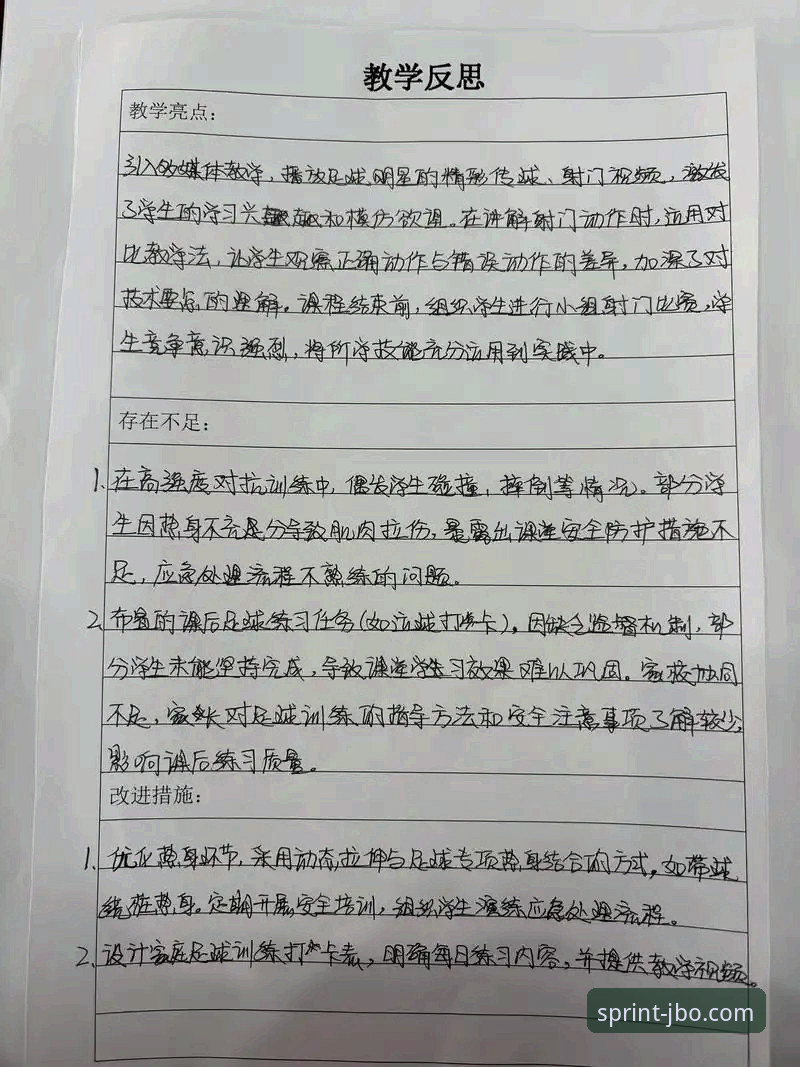 教学反思
教学亮点:
引入多媒体教学，播放足球明星的精彩传球、射门视频，激发
了学生的学习兴趣和模仿欲望。在讲解射门动作时，运用对
比教学法，让学生观察正确动作与错误动作的差异，加深了对
技术要点的理解。课程结束前，组织学生进行小组射门比赛，学
生竞争意识强烈，将所学技能充分运用到实践中。
存在不足:
1. 在高强度对抗训练中，偶发学生碰撞，摔倒等情况。部分学
生因热身不充分导致肌肉拉伤，暴露出课堂安全防护措施不
足，应急处理流程不熟练的问题。
2. 布置的课后足球练习任务(如运球打卡)。因缺乏监督机制，部
分学生未能坚持完成，导致课堂学习效果难以巩固。家校协同
不足，家长对足球训练的指导方法和安全注意事项了解较少，
影响课后练习质量。
改进措施:
1. 优化热身环节，采用动态拉伸与足球专项热身结合的方式，如带球
绕桩热身。定期开展安全培训，组织学生演练应急处理流程。
2. 设计家庭足球训练打卡表，明确每日练习内容，并提供教学视频。
sprint-jbo.com